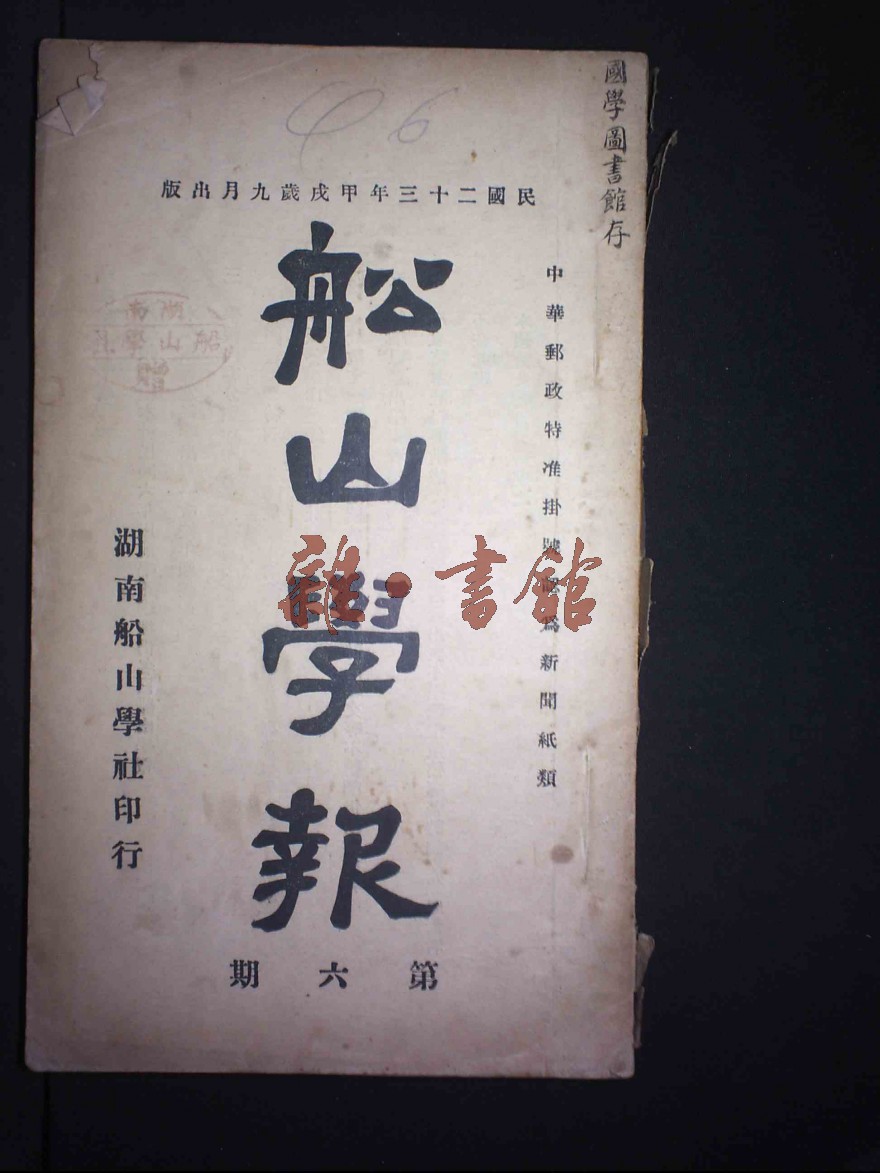 國學圖書館存
6
民國二十三年甲戌歲九月出版
中華郵政特准掛號認爲新聞紙類
船山學報
第六期
湖南船山學社印行
湖南
船山學社
贈
雜·書館